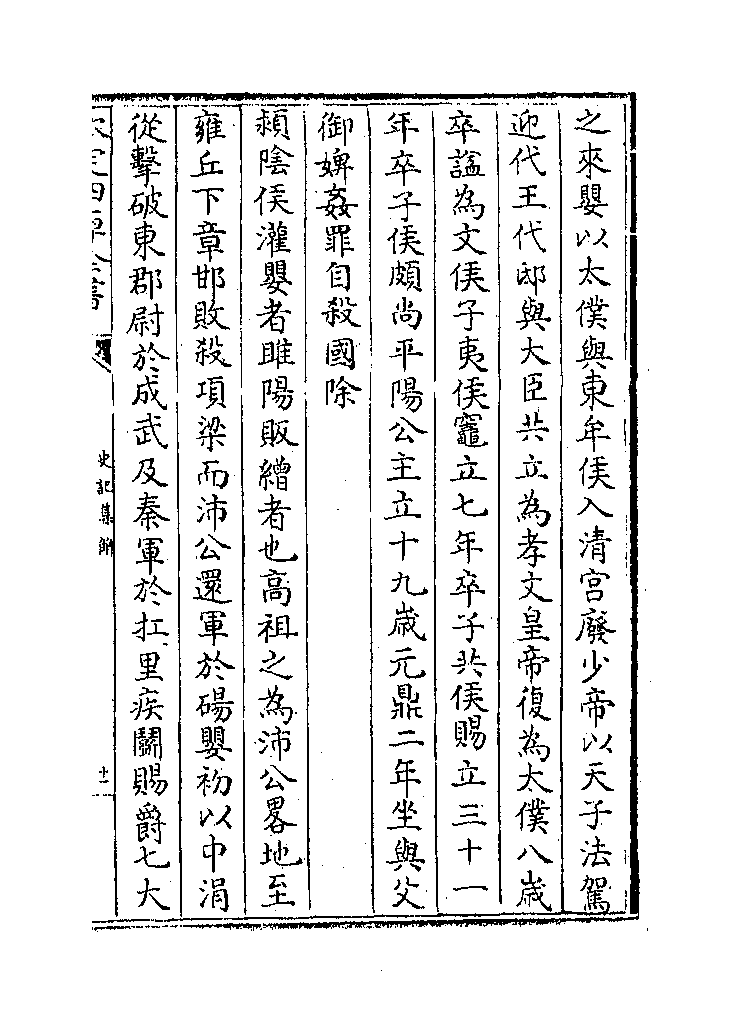 之來嬰以太僕與東牟侯入清宫廢少帝以天子法駕
迎代王代邸與大臣共立為孝文皇帝復為太僕八歲
卒諡為文侯子夷侯竈立七年卒子共侯賜立三十一
年卒子侯頗尚平陽公主立十九歲元鼎二年坐與父
御婢姦罪自殺國除
潁陰侯灌嬰者睢陽販繒者也高祖之為沛公畧地至
雍丘下章邯敗殺項梁而沛公還軍於碭嬰初以中涓
從擊破東郡尉於成武及秦軍於扛里疾鬭賜爵七大
史記集解
十二